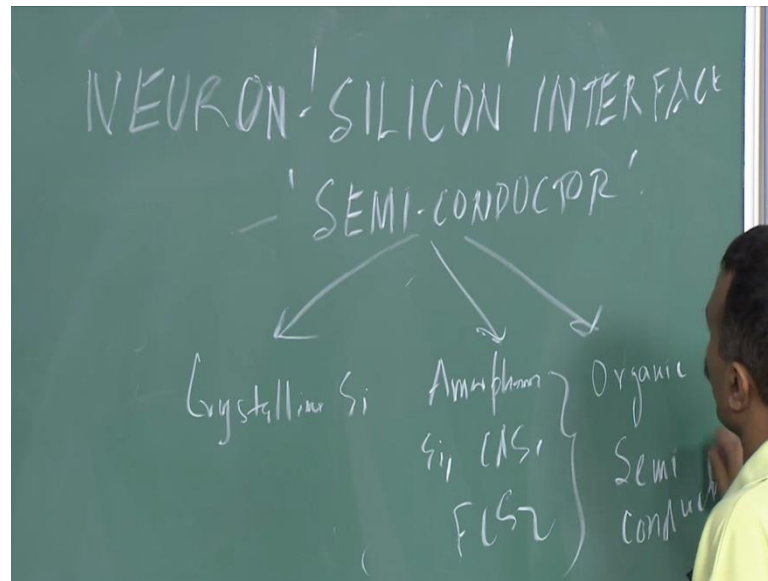 NEURON 'SILICON' INTERFACE
- 'SEMI-CONDUCTOR'
Crystalline Si
Amorphous
Si, CdS,
FeS2
Organic
Semi
conduct